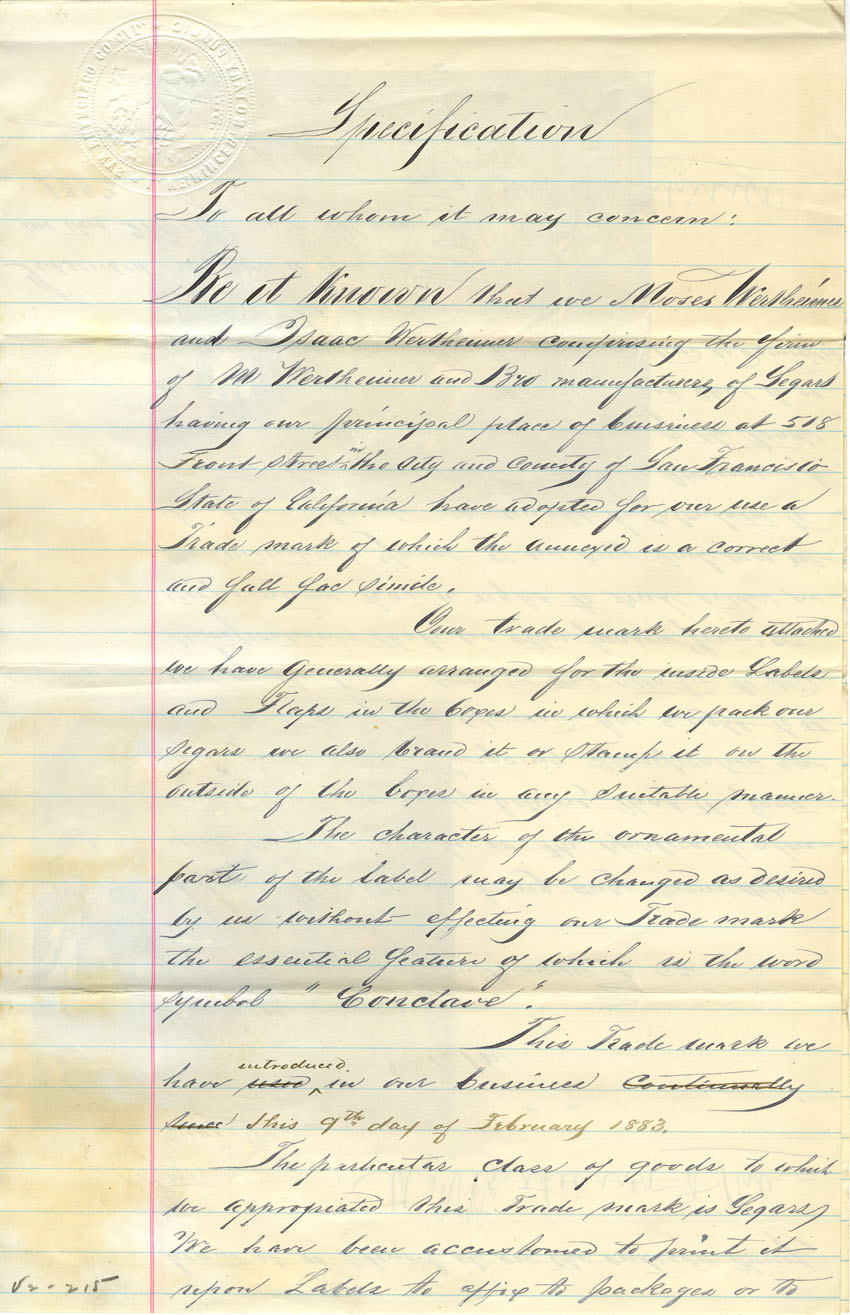 NOTARY PUBLIC
SAN FRANCISCO CO. CAL.
Specification
To all whom it may concern:
Be it Known that we Moses Wertheimer
and Isaac Wertheimer comprising the firm
of M Wertheimer and Bro manufacturers of Segars
having our principal place of buisiness at 518
Front Street in the City and County of San Francisco
State of California have adopted for our use a
Trade mark of which the annexed is a correct
and full fac simile.
Our trade mark hereto attached
we have generally arranged for the inside Labels
and Flaps in the boxes in which we pack our
Segars we also brand it or stamp it on the
outside of the boxes in any suitable manner.
The character of the ornamental
part of the label may be changed as desired
by us without effecting our Trade mark
the essential feature of which is the word
symbol "Conclave".
This Trade mark we
introduced
have used in our business Continually
since this 9th day of February 1883.
The particular class of goods to which
we appropriated this Trade mark is Segars,
We have been accustomed to print it
upon Labels to affix to packages or to
V2-215